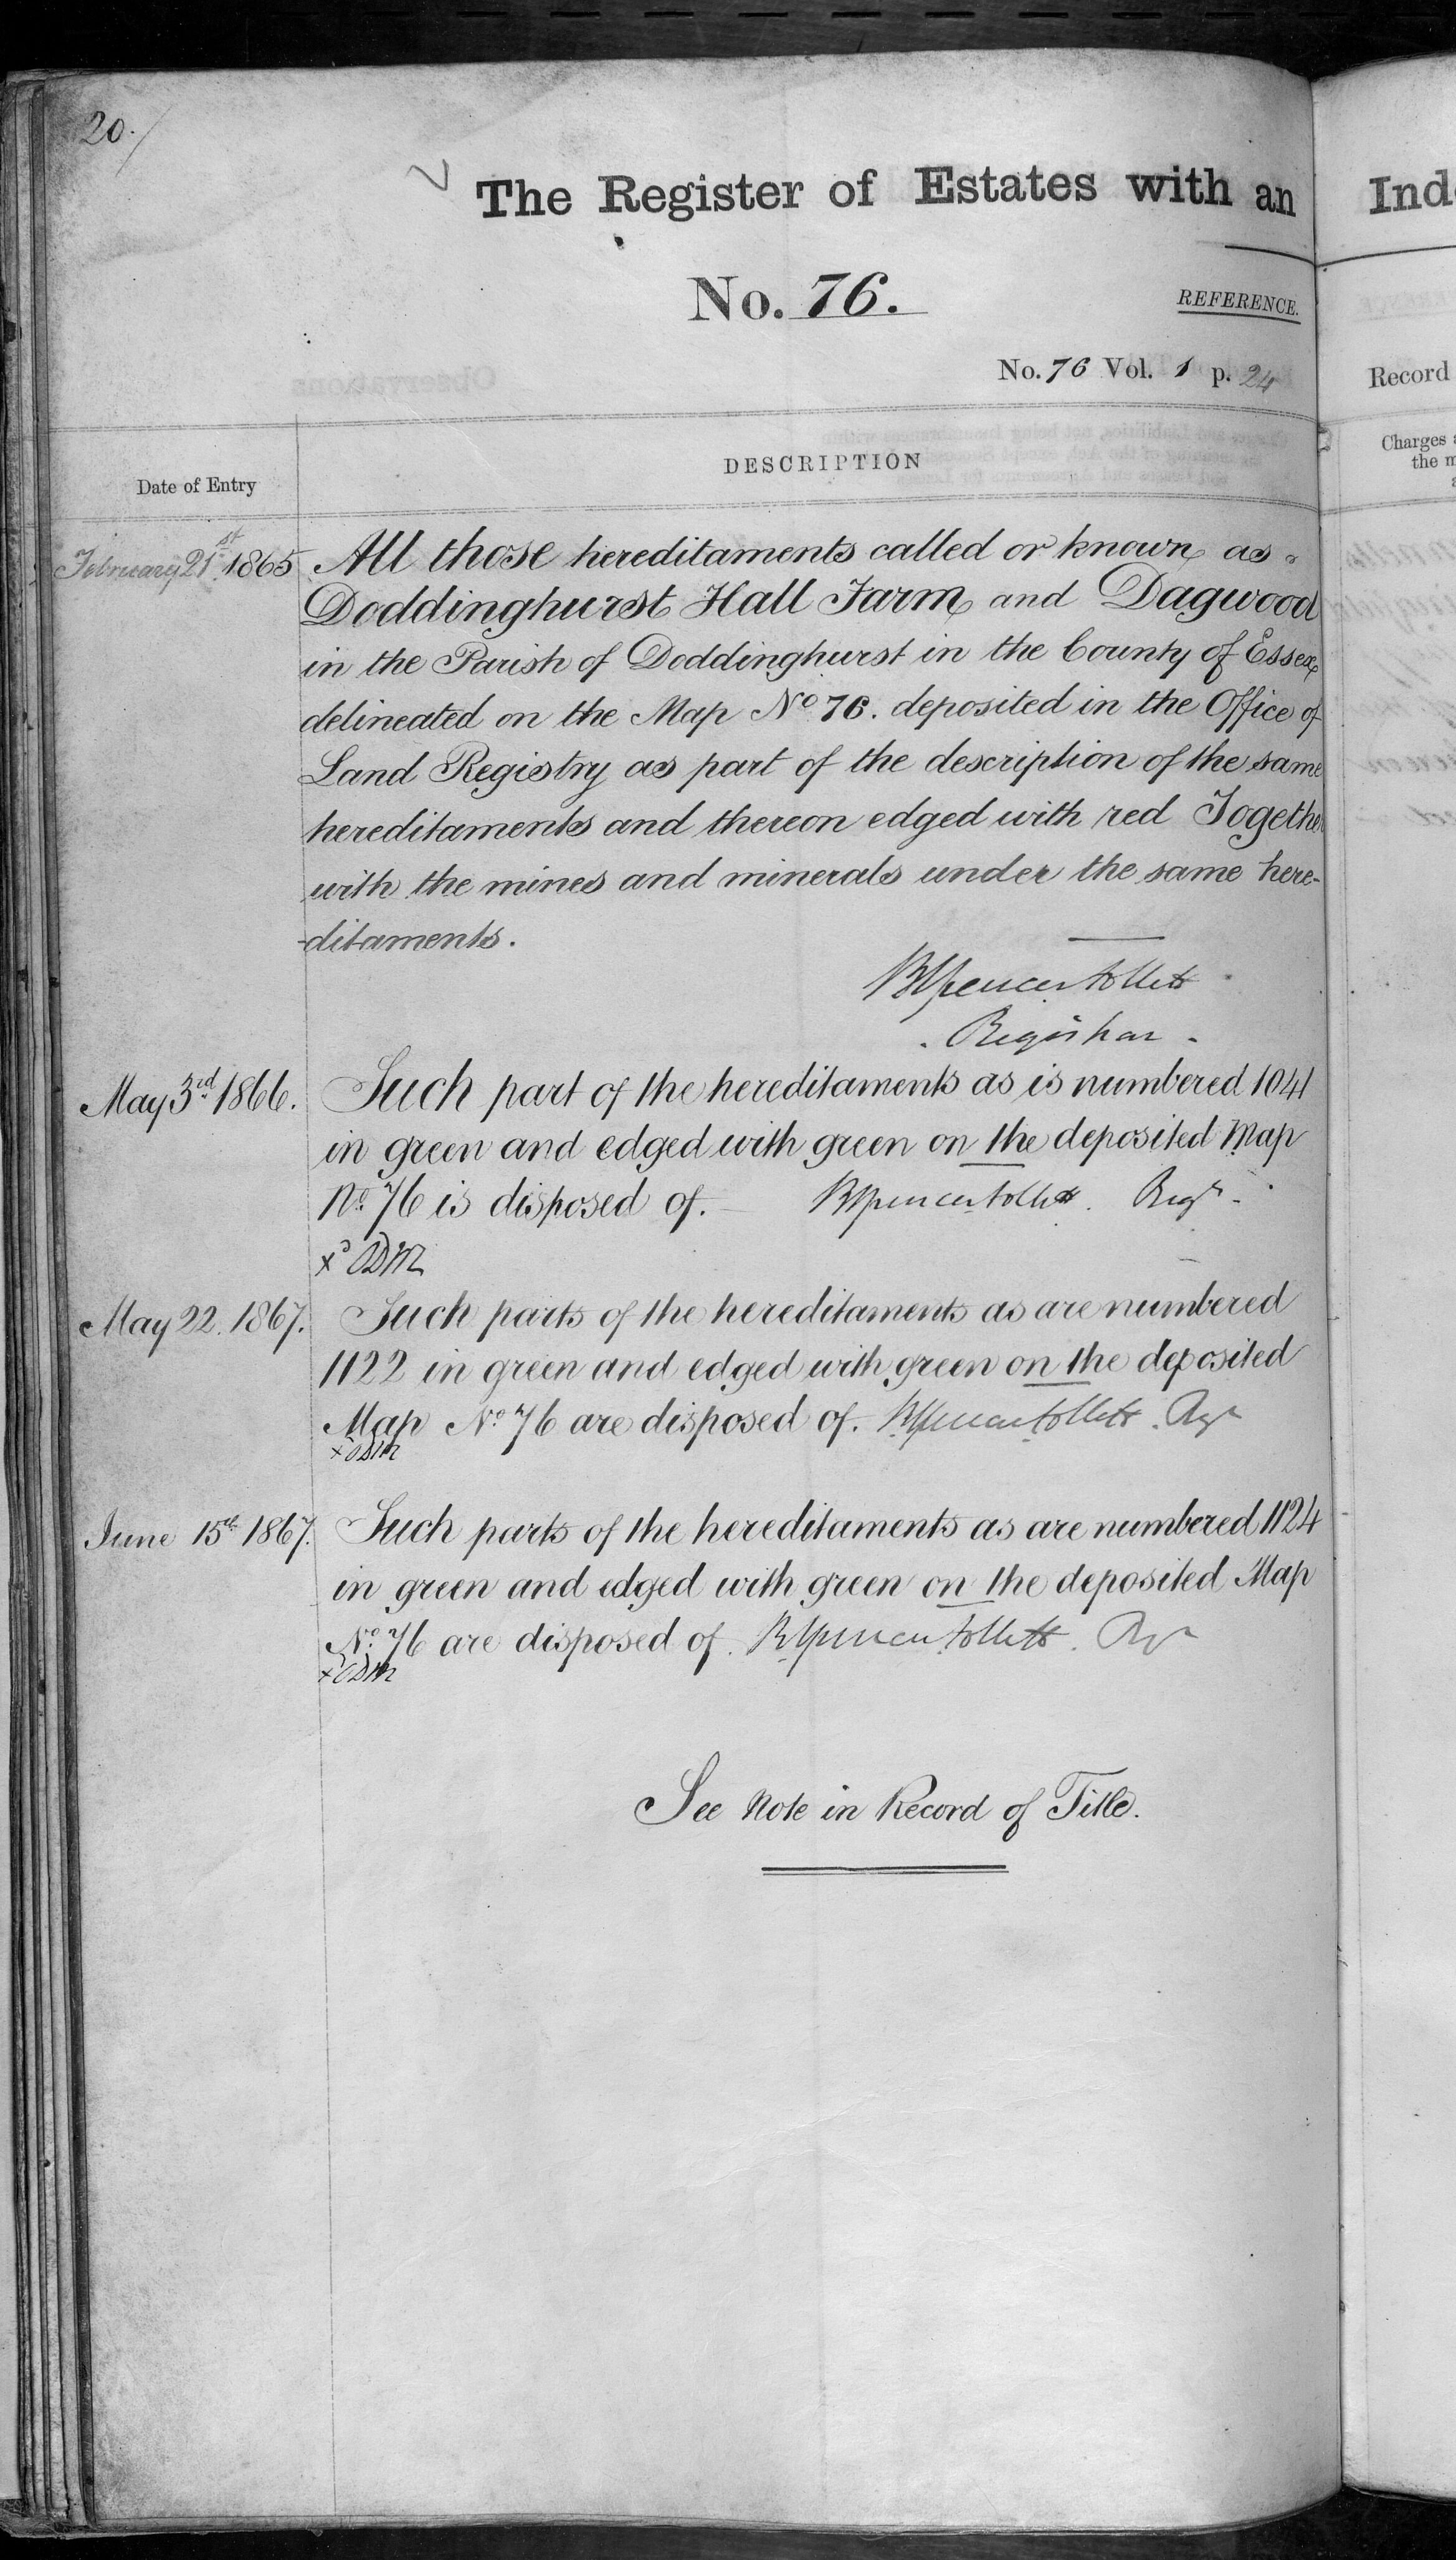 20.
The Register of Estates with an
Ind
No. 76.
REFERENCE.
No. 76 Vol. 1 p. 24
Record
Charges
the m
Date of Entry
DESCRIPTION
February 21st 1865 All those hereditaments called or known as
Doddinghurst Hall Farm and Dagwood
in the Parish of Doddinghurst in the County of Essex
delineated on the Map No 76. deposited in the Office of
Land Registry as part of the description of the same
hereditaments and thereon edged with red Together
with the mines and minerals under the same here-
-ditaments.
B Spencer Follett
Registrar
May 3rd 1866. Such part of the hereditaments as is numbered 1041
in green and edged with green on the deposited Map
No. 76 is disposed of. B Spencer Follett. Regr.
May 22. 1867. Such parts of the hereditaments as are numbered
1122 in green and edged with green on the deposited
Map No. 76 are disposed of. B Spencer Follett. Regr
June 15th 1867. Such parts of the hereditaments as are numbered 1124
in green and edged with green on the deposited Map
No. 76 are disposed of. B Spencer Follett. Regr
See Note in Record of Title.